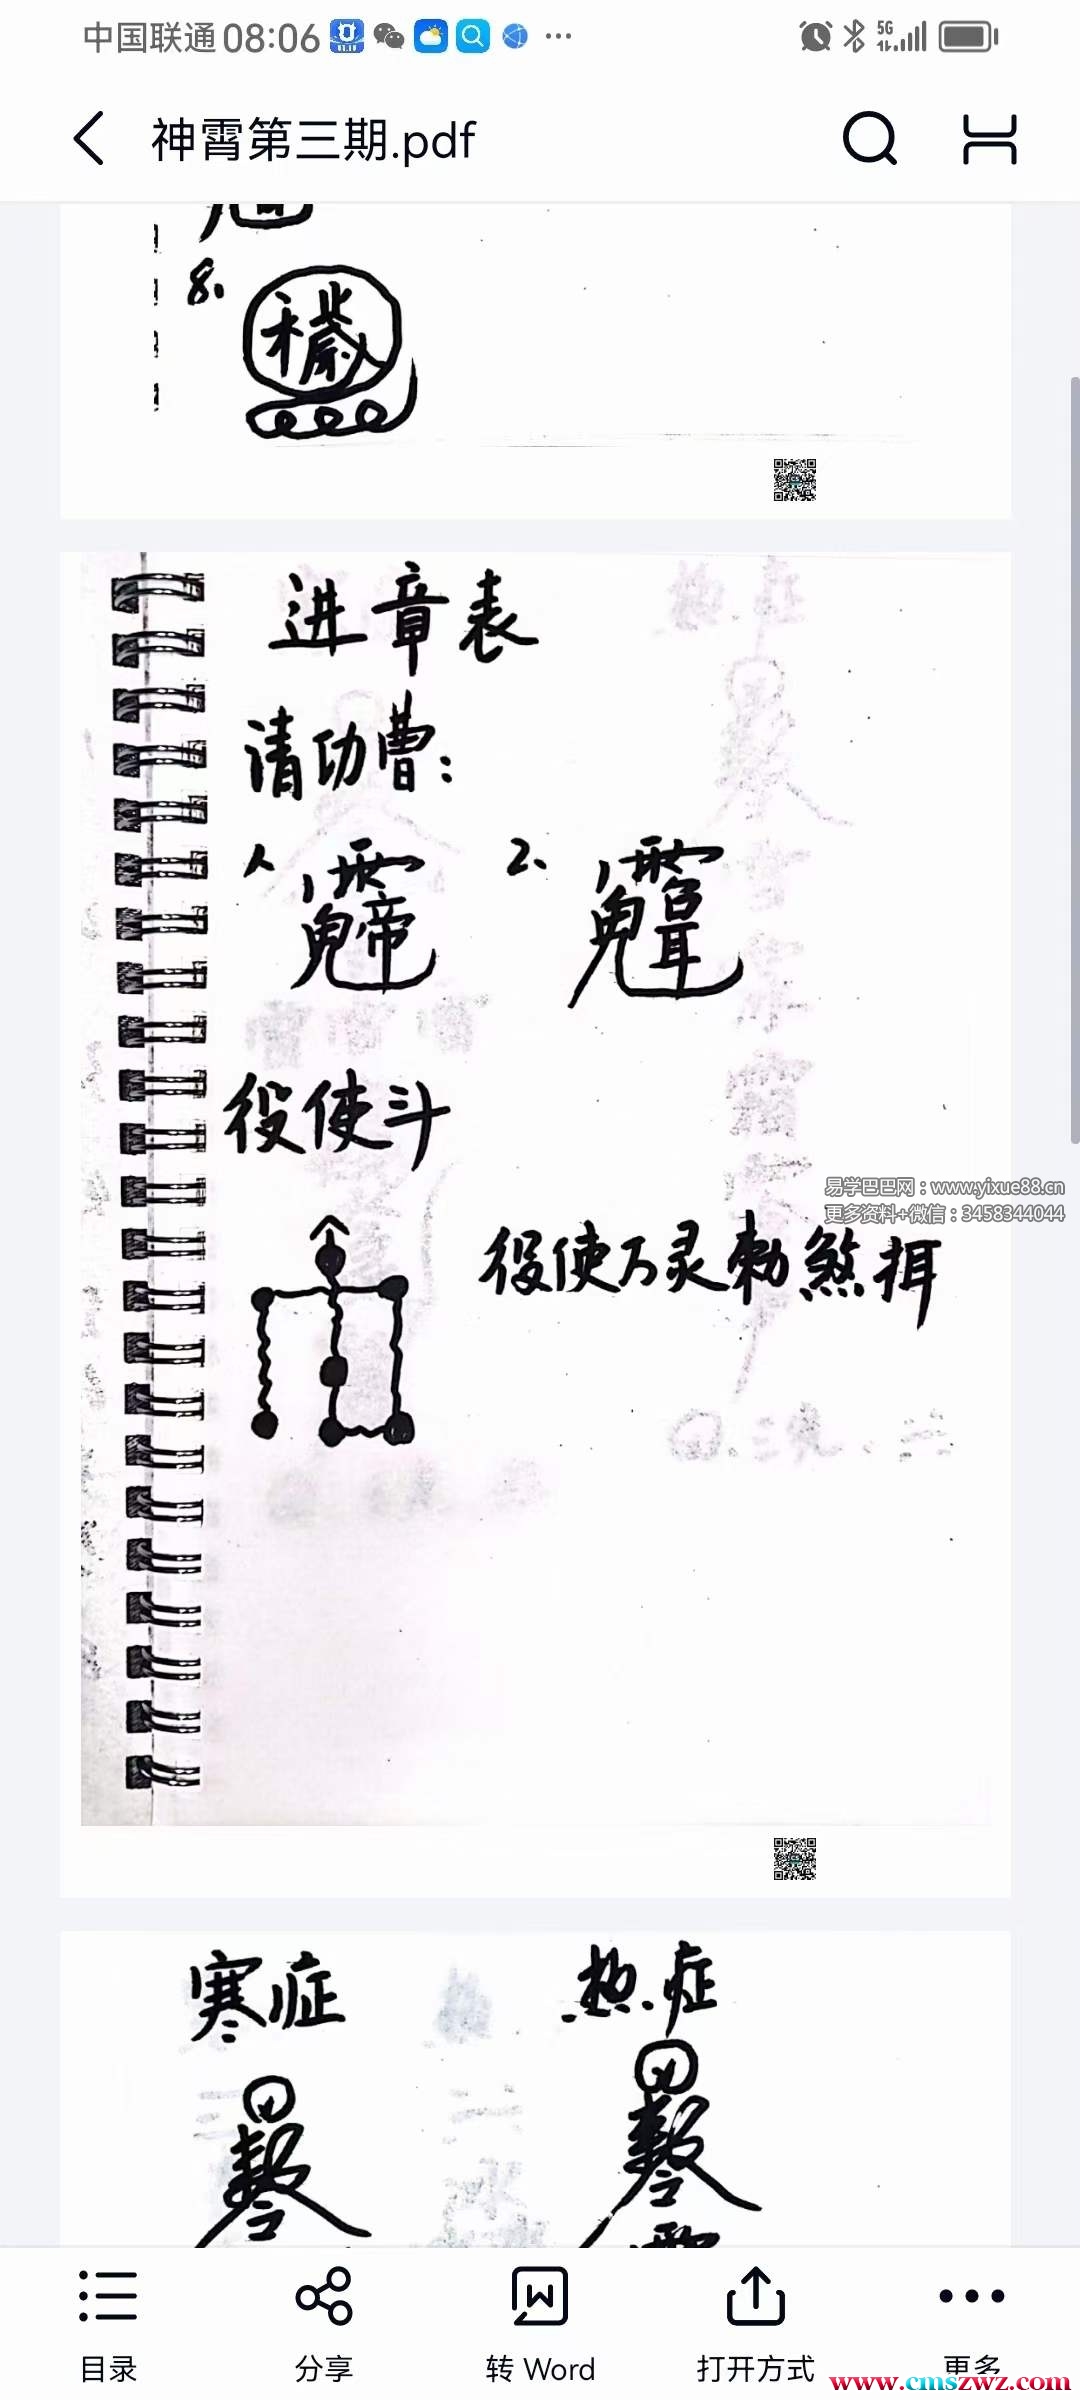 中国联通 08:06
神霄第三期.pdf
8、
穢
进章表
请功曹：
1、
2、
役使斗
易学巴巴网：www.yixue88.cn
更多资料+微信：3458344044
役使万灵勅煞揖
寒症
热症
目录
分享
转 Word
打开方式
更多
www.cmszwz.com